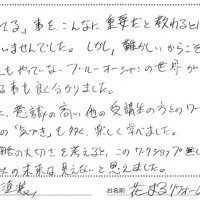 てる」事を、こんなに重要だと教わると
いませんでした。しかし、難かしいからこそ
もやっていないブルーオーシャンの世界が
る事も良く分かりました。
意識の高い他の受講生の方とのワー
の「気づき」も多く、楽しく学べました。
略の大切さを考えると、このワークショップ無し
の未来は見えないと思えました。
塗装
お名前 花まるリフォーム